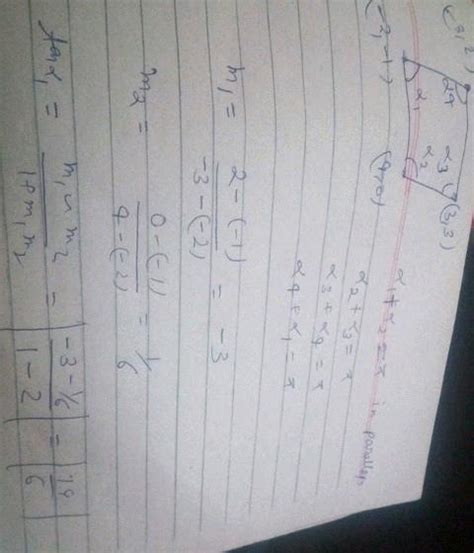 (3,3)
α4 α3
α1 α2
(-2,-1) (4,0)
α1 + α2 = π in parallelo
α2 + α3 = π
α3 + α4 = π
α4 + α1 = π
m1 = 2 - (-1) / -3 - (-2) = -3
m2 = 0 - (-1) / 4 - (-2) = 1/6
tan α1 = m1 - m2 / 1 + m1 m2 = | -3 - 1/6 / 1 - 2 | = | 19 / 6 |